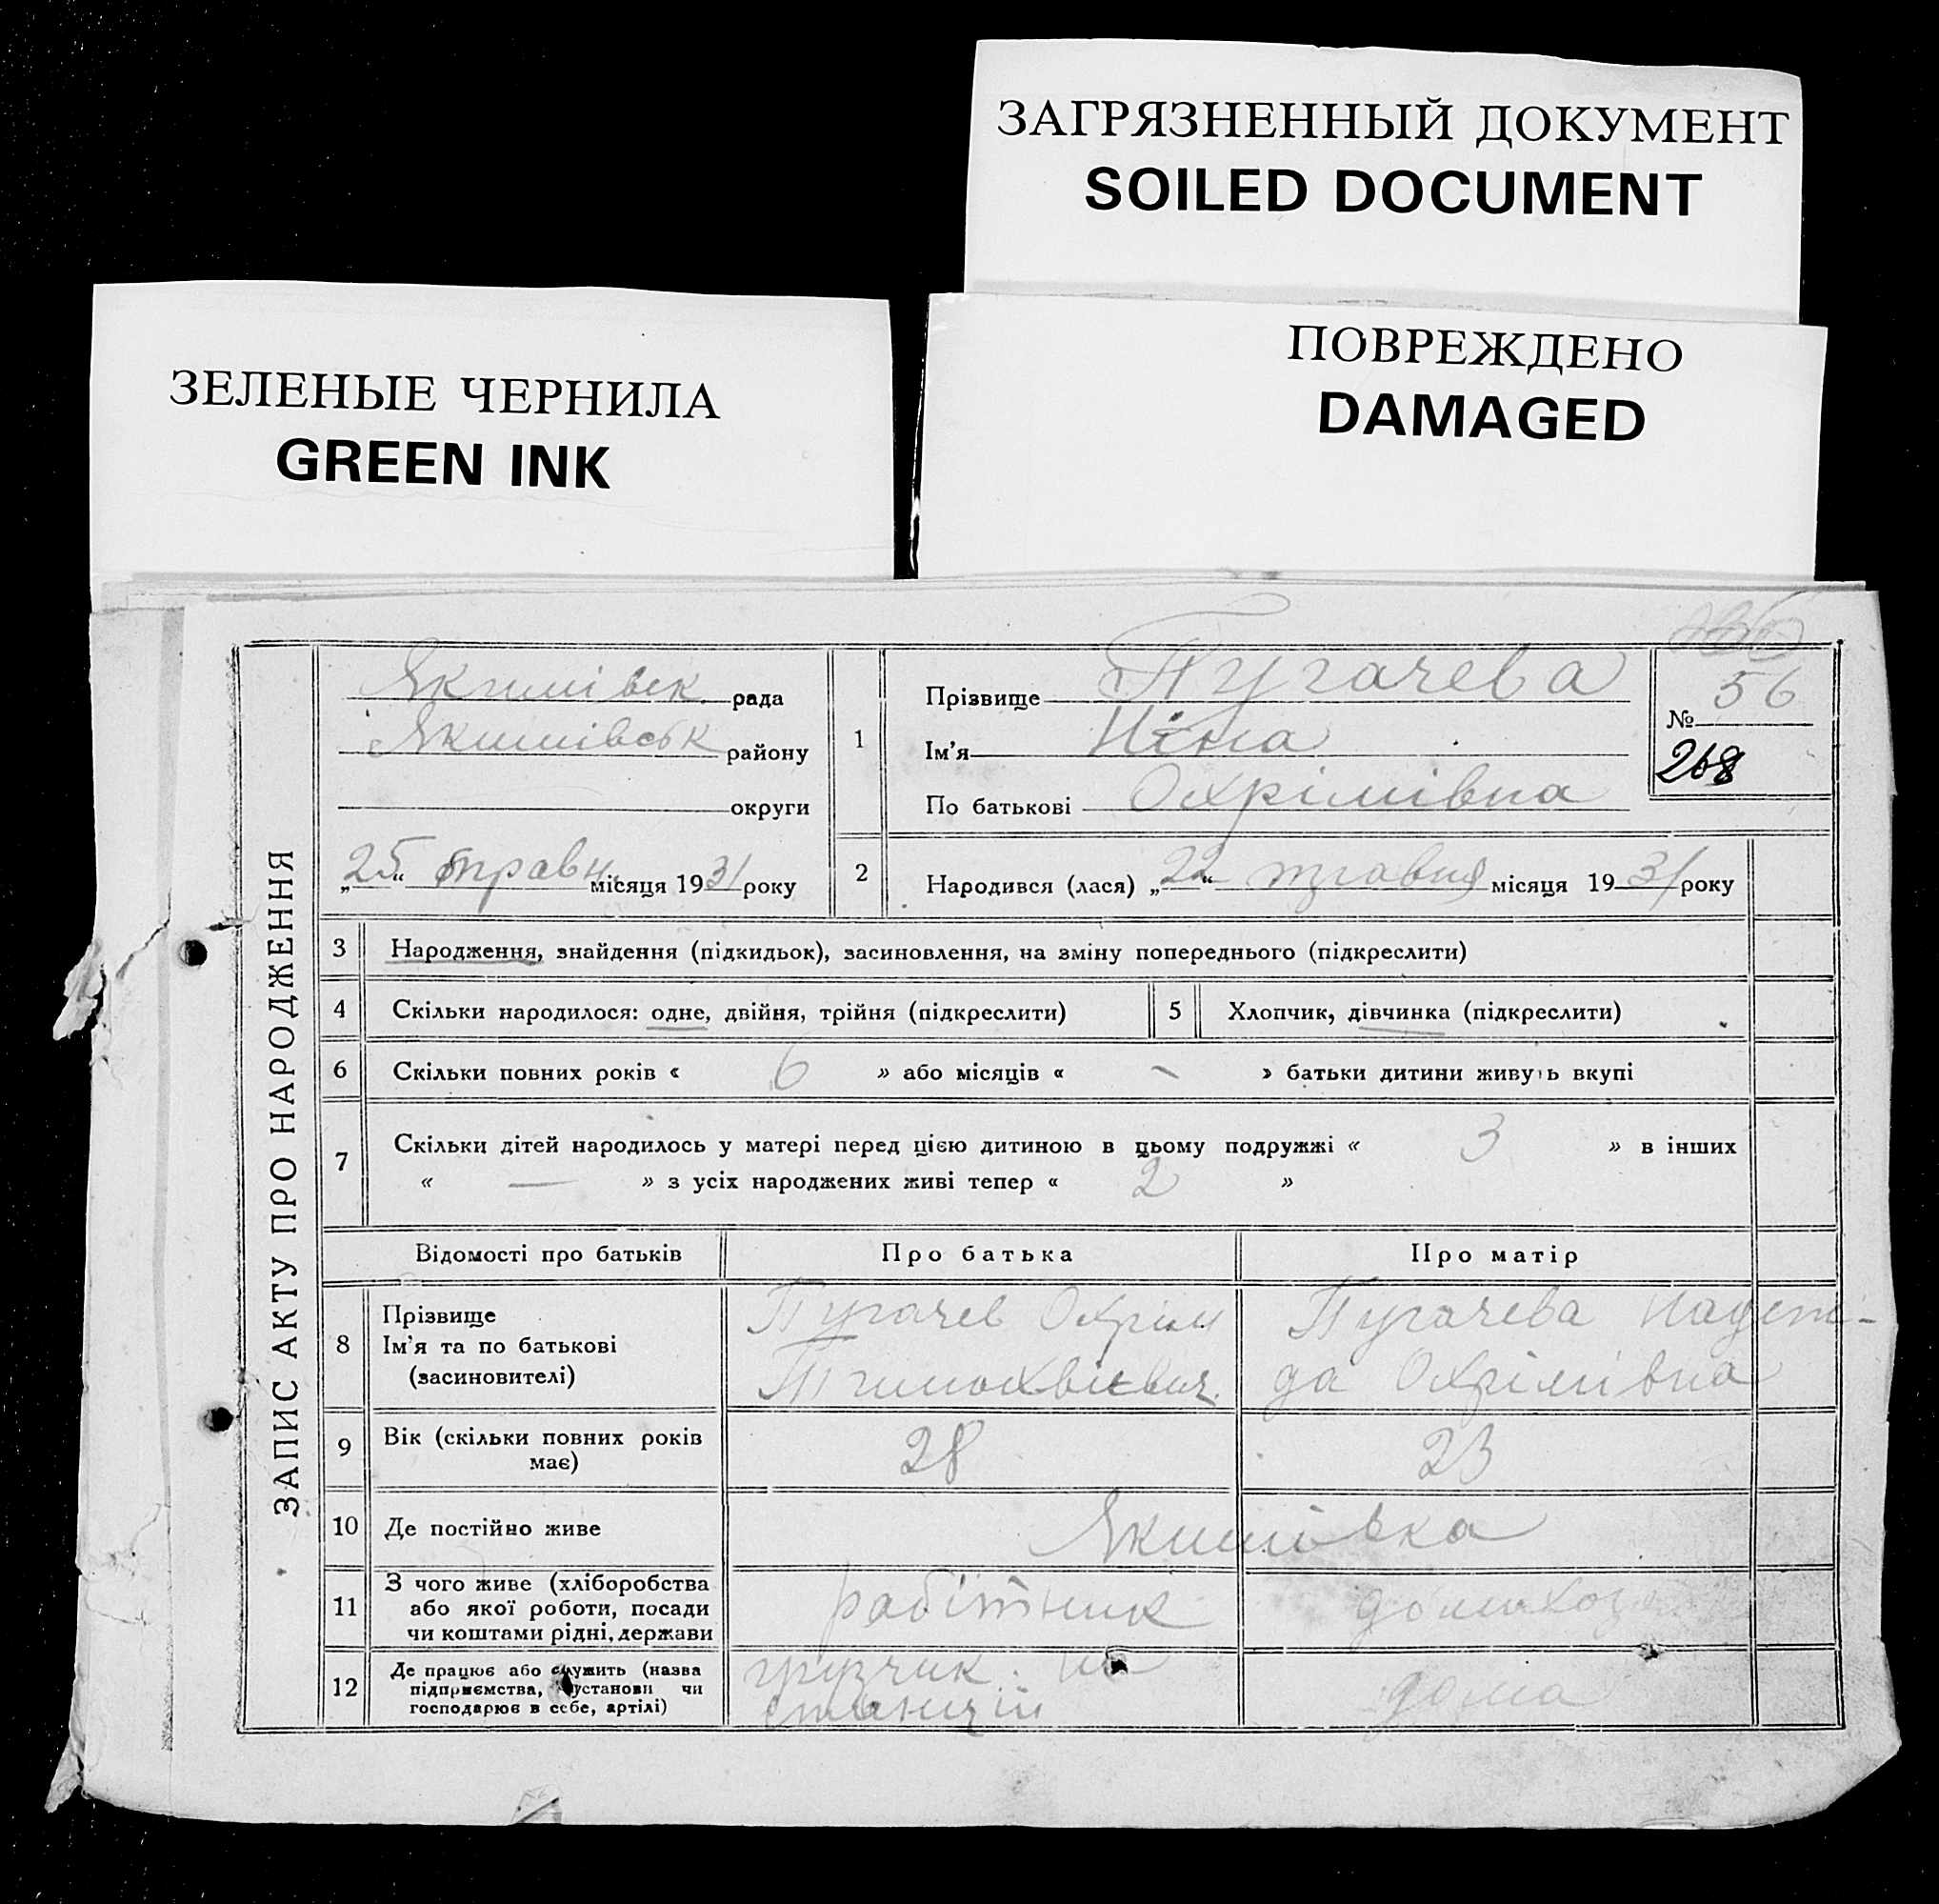 ЗАГРЯЗНЕННЫЙ ДОКУМЕНТ
SOILED DOCUMENT
ПОВРЕЖДЕНО
DAMAGED
ЗЕЛЕНЫЕ ЧЕРНИЛА
GREEN INK
ЗАПИС АКТУ ПРО НАРОДЖЕННЯ
Якимівськ рада
Якимівськ району
округи
„25“ травн. місяця 1931 року
1 Прізвище Пугачева
Ім'я Ніна
По батькові Охрімівна
56
№
268
2 Народився (лася) „22“ травня місяця 1931 року
3 Народження, знайдення (підкидьок), засиновлення, на зміну попереднього (підкреслити)
4 Скільки народилося: одне, двійня, трійня (підкреслити) 5 Хлопчик, дівчинка (підкреслити)
6 Скільки повних років « 6 » або місяців « - » батьки дитини живуть вкупі
7 Скільки дітей народилось у матері перед цією дитиною в цьому подружжі « 3 » в інших
« — » з усіх народжених живі тепер « 2 »
Відомості про батьків Про батька Про матір
8 Прізвище
Ім'я та по батькові
(засновителі)
Пугачев Охрім
Тимохвієвич.
Пугачева Надеж-
да Охрімівна
9 Вік (скільки повних років
має)
28 23
10 Де постійно живе Якимівка
11 З чого живе (хліборобства
або якої роботи, посади
чи коштами рідні, держави
рабітник
12 Де працює або служить (назва
підприємства, установи чи
господарює в себе, артілі)
грузчик. на
станціи
дома